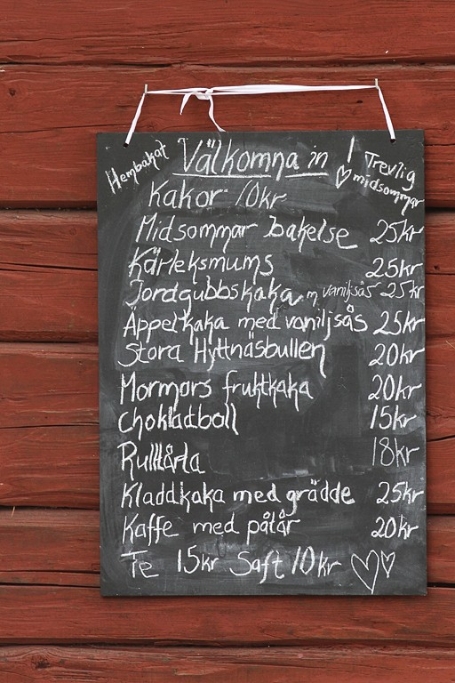 Hembakat Välkomna in ! Trevlig
midsommar
Kakor 10kr
Midsommar bakelse 25kr
Kärleksmums 25kr
Jordgubbskaka m vaniljsås 25kr
Äppelkaka med vaniljsås 25kr
Stora Hyttnäsbullen 20kr
Mormors fruktkaka 20kr
Chokladboll 15kr
Rulltårta 18kr
Kladdkaka med grädde 25kr
Kaffe med påtår 20kr
Te 15kr Saft 10kr